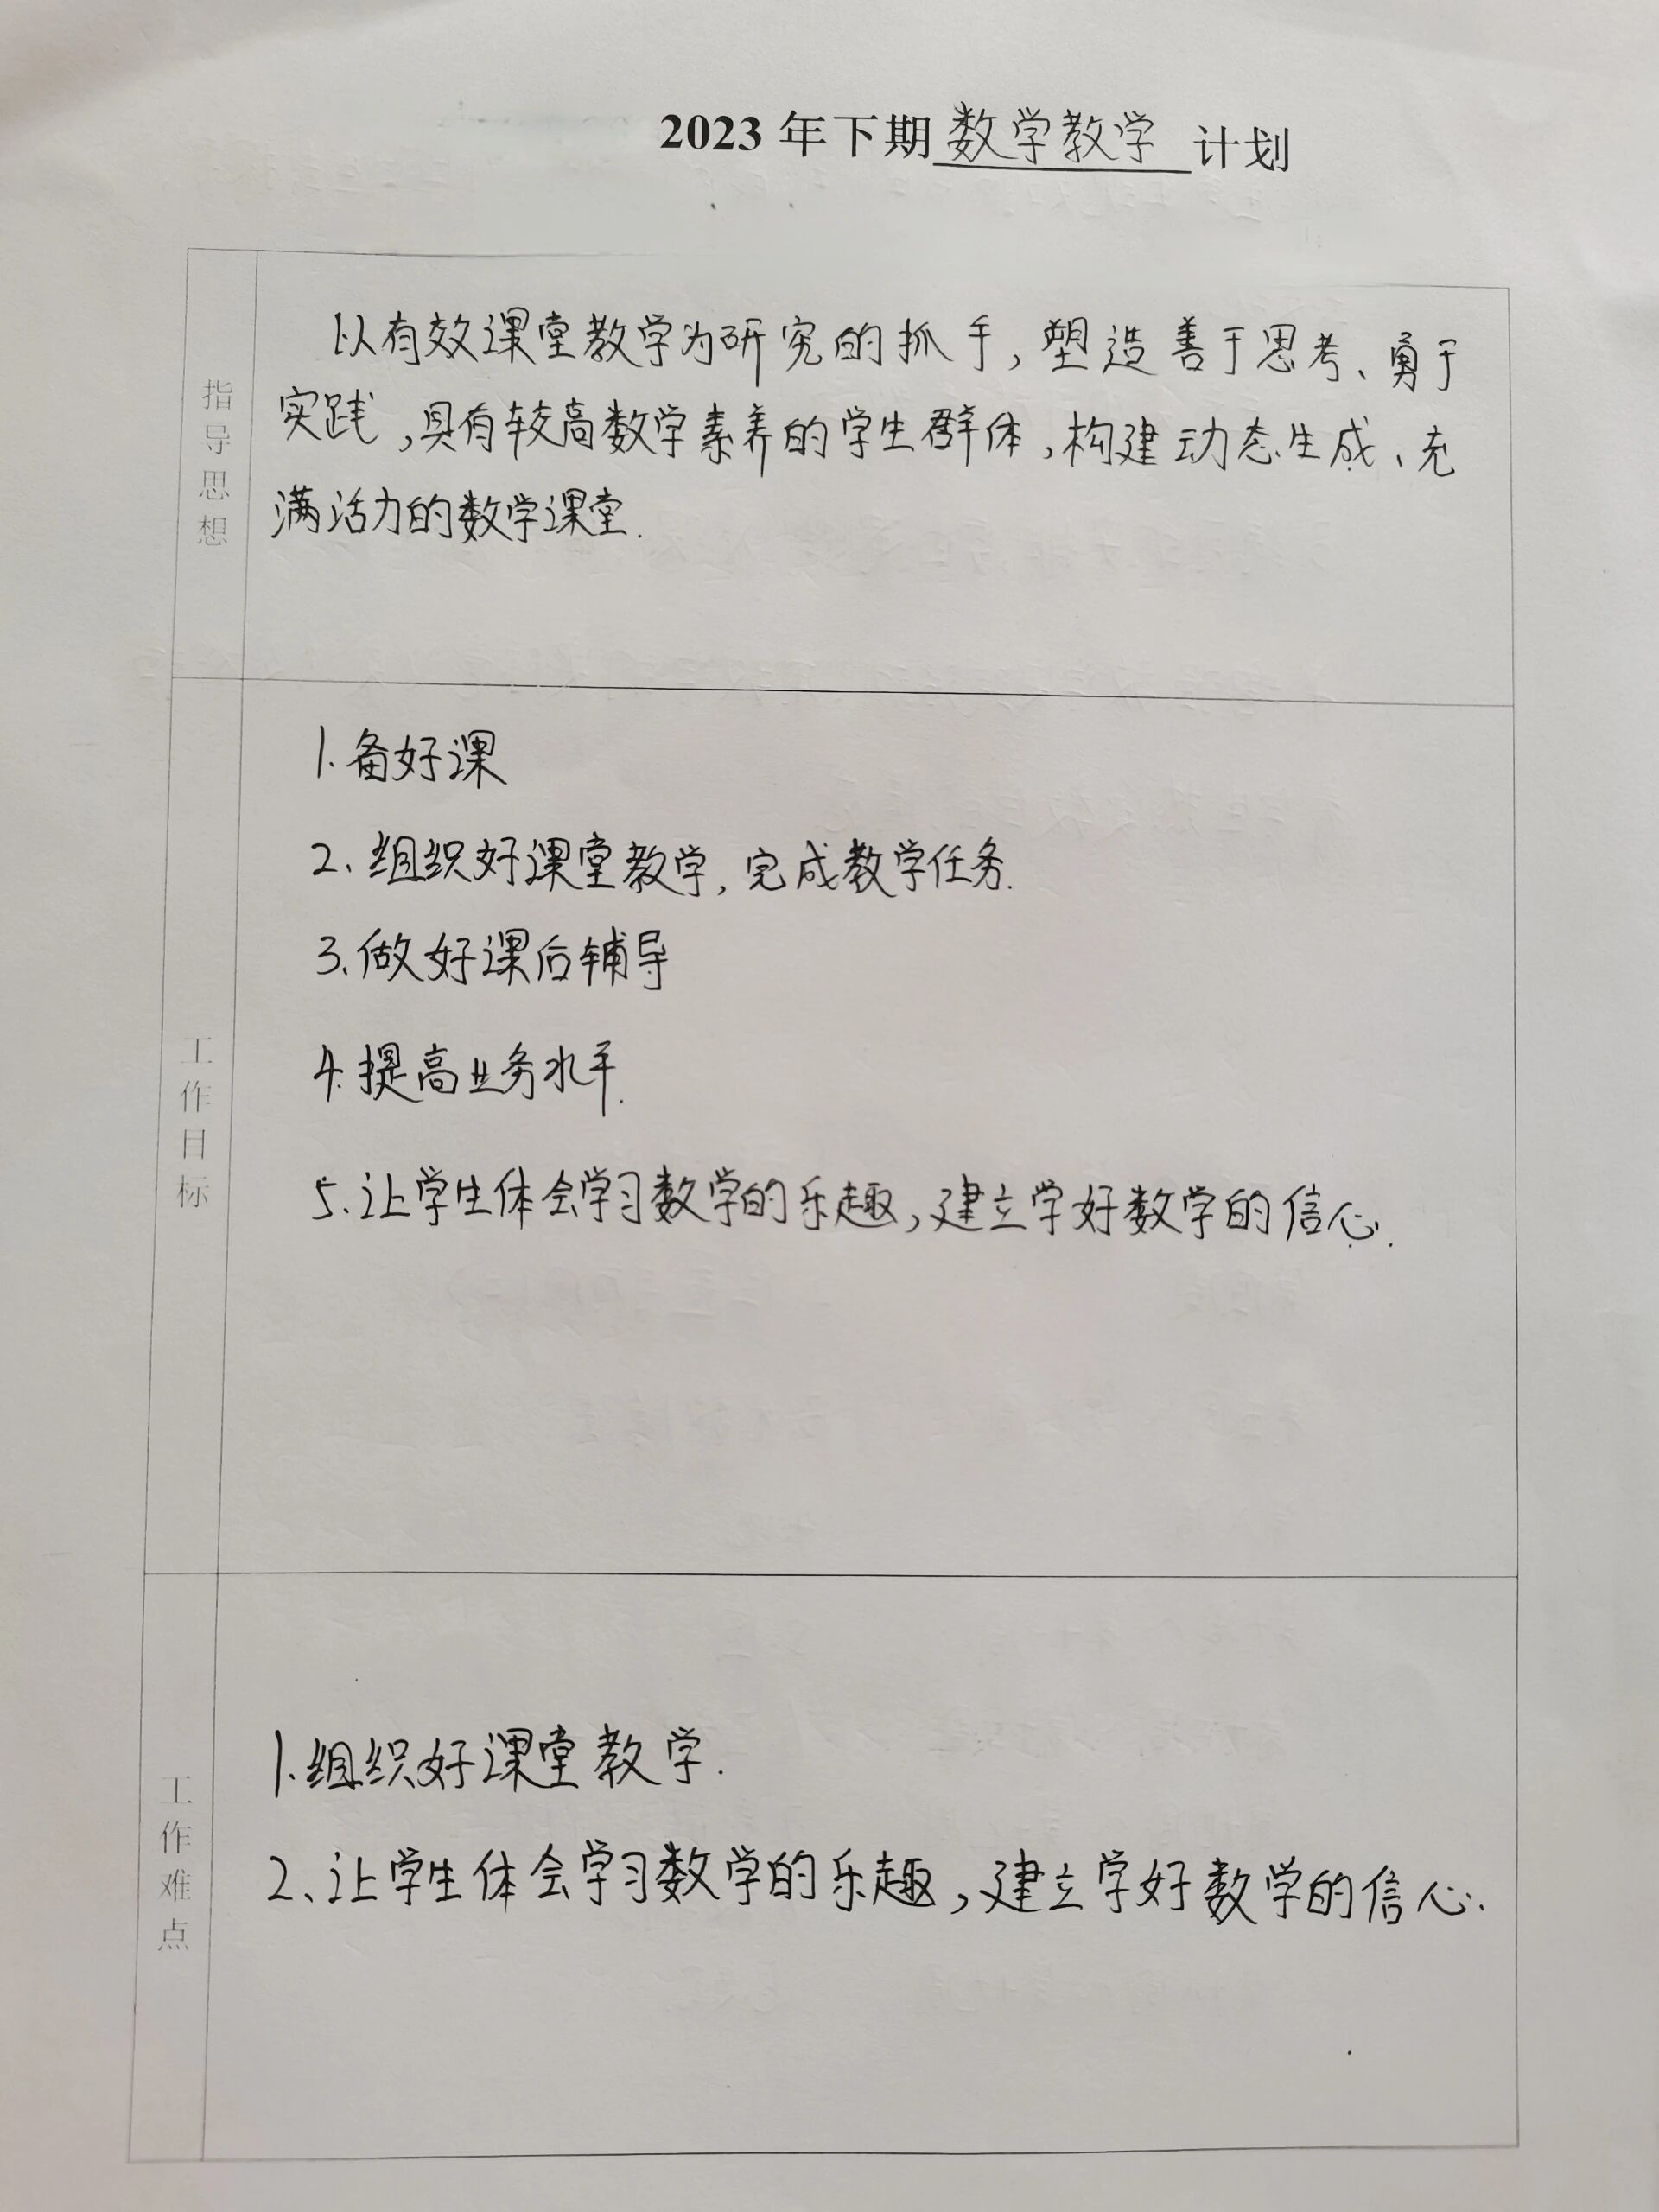 2023年下期数学教学计划
指导思想
以有效课堂教学为研究的抓手,塑造善于思考、勇于
实践,具有较高数学素养的学生群体,构建动态生成、充
满活力的数学课堂.
工作目标
1.备好课
2、组织好课堂教学,完成教学任务.
3、做好课后辅导
4.提高业务水平.
5、让学生体会学习数学的乐趣,建立学好数学的信心.
工作难点
1.组织好课堂教学.
2、让学生体会学习数学的乐趣,建立学好数学的信心.